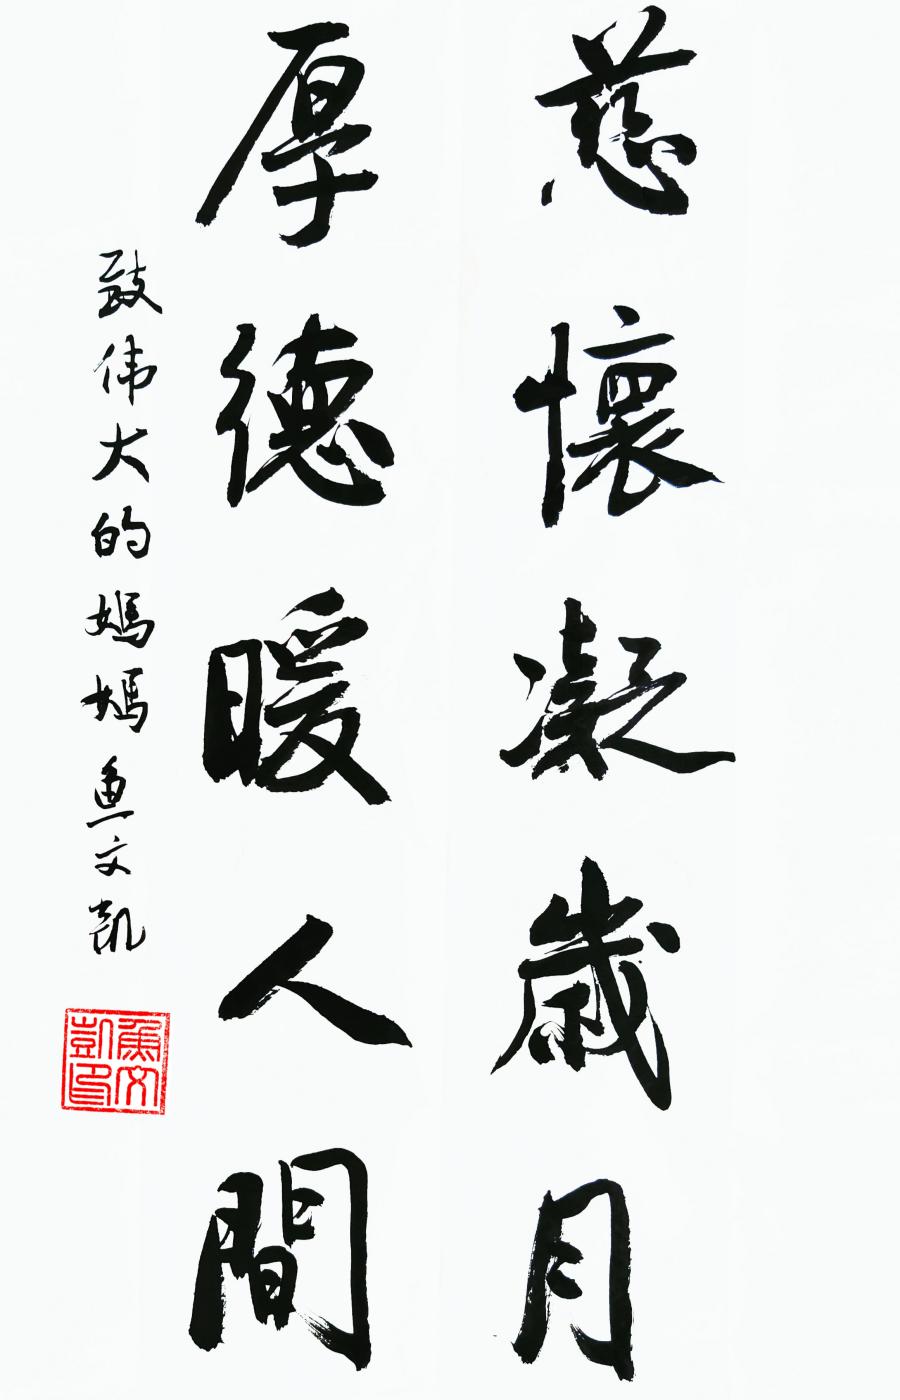 慈懷凝歲月
厚德暖人間
致伟大的媽媽鱼文凯
魚文凱印